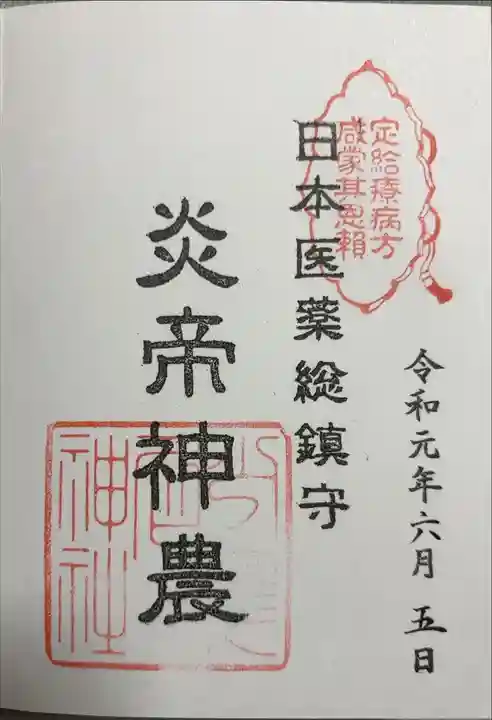 定給療病方
咸蒙其恩頼
日本医薬総鎮守
炎帝神農
令和元年六月五日
少彦名
神社